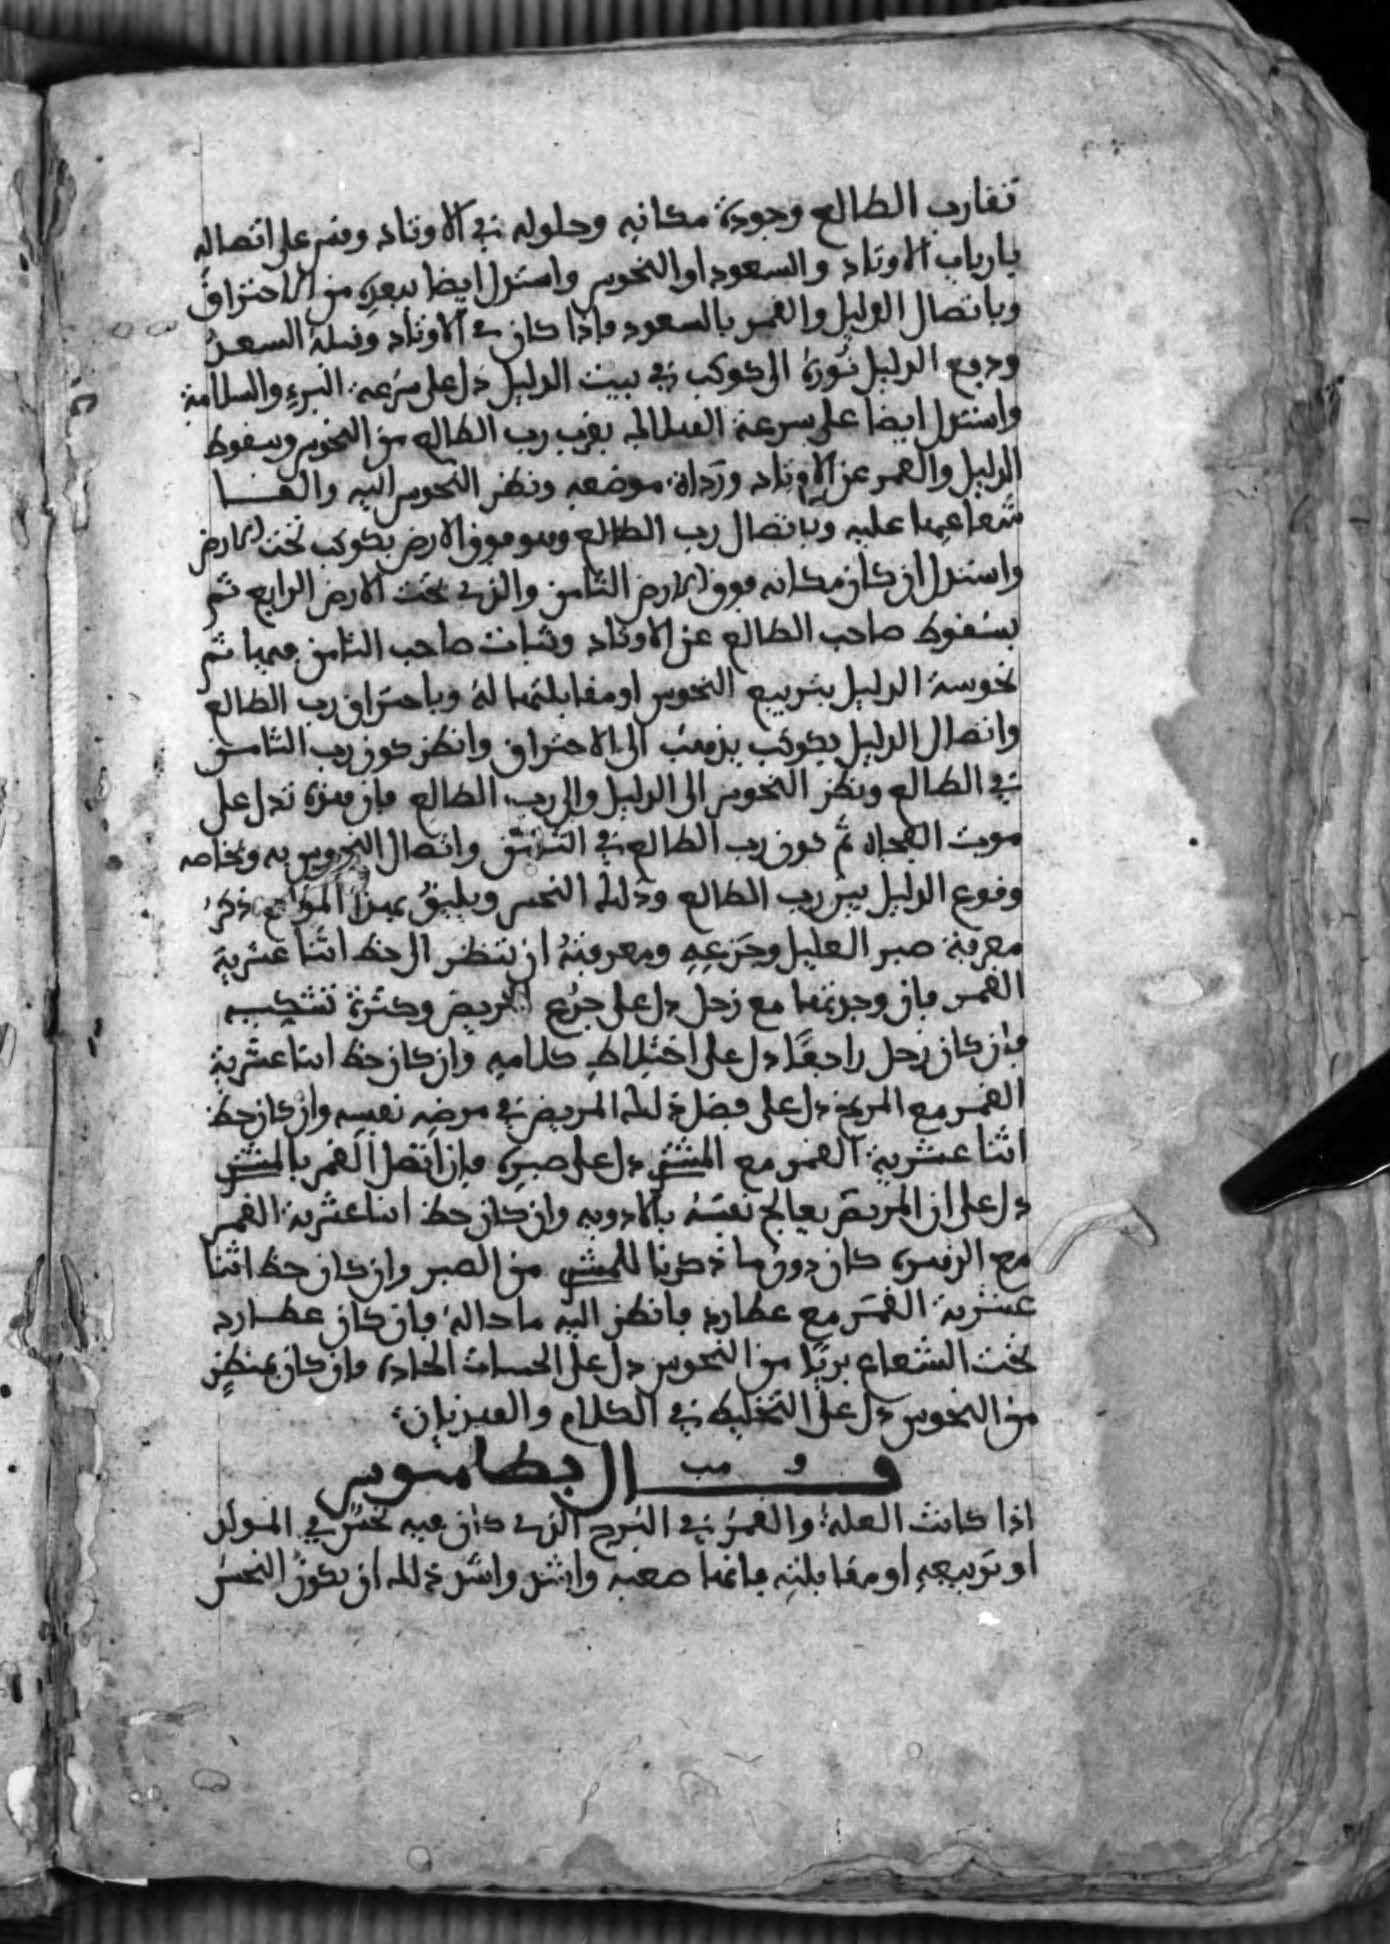 تقارب الطالع وجودة مكانه وحلوله في الاوتاد وقس على اتصاله
بارباب الاوتاد والسعود او النحوس واستدل ايضا ببعده من الاحتراق
وباتصال الدليل والقمر بالسعود فاذا كان في الاوتاد وقبله السعد
ودفع الدليل نوره الى كوكب في بيت الدليل دل على سرعة البرء والسلامة
واستدل ايضا على سرعة بقرب رب الطالع من النحوس وسقوط
الدليل والقمر عن الاوتاد ورداة موضعه ونظر النحوس اليه والقا
شعاعها عليه وباتصال رب الطالع وهو فوق الارض بكوكب تحت الارض
واستدل ان كان مكانه فوق الارض الثامن والذي تحت الارض الرابع ثم
بسقوط صاحب الطالع عن الاوتاد وثبات صاحب الثامن فيها ثم
نحوسة الدليل بتربيع النحوس او مقابلتها له وباحتراق رب الطالع
واتصال الدليل بكوكب يذهب الى الاحتراق وانظر كون رب الثامن
في الطالع ونظر النحوس الى الدليل والى رب الطالع فان هذه تدل على
موت الفجاة ثم كون رب الطالع في واتصال النحوس به وبخاصه
وقوع الدليل بين رب الطالع وذلك النحس ويليق بهذا المواضع ذكر
معرفة صبر العليل وجزعه ومعرفته ان تنظر الى حظ اثنا عشرية
القمر فان وجدتها مع زحل دل على جزع المريض وكثرة تشكيه
فان كان زحل راجعا دل على اختلاط كلامه وان كان حظ اثنا عشرية
القمر مع المريخ دل على فضل ذلك المريض في مرضه نفسه وان كان حظ
اثنا عشرية القمر مع المشتري دل على صبره فان اتصل القمر بالمشتري
دل على ان المريض يعالج نفسه بالادويه وان كان حظ اثنا عشرية القمر
مع الزهرة كان دون ما ذكرنا للمشتري من الصبر وان كان حظ اثنا
عشرية القمر مع عطارد فانظر اليه ما حاله فان كان عطارد
تحت الشعاع بريا من النحوس دل على الحسيات الحادة وان كان بمنظر
من النحوس دل على التخليط في الكلام والهذيان
قال بطلميوس
اذا كانت العلة والقمر في البرج الذي كان فيه نحس في المولد
او تربيعه او مقابلته فانها صعبه واشد واشد ذلك ان يكون النحس